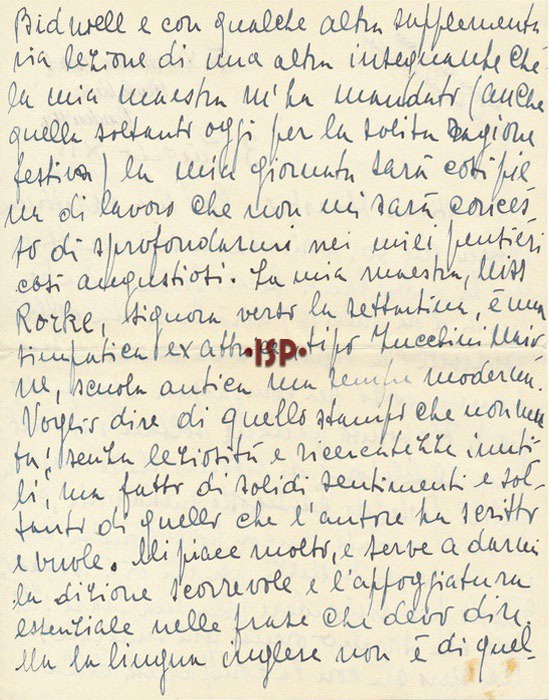 Bidwell e con qualche altra supplementa
ria lezione di una altra insegnante che
la mia maestra m'ha mandato (anche
quella soltanto oggi per la solita ragione
festiva) la mia giornata sarà così pie
na di lavoro che non mi sarà conces-
so di sprofondarmi nei miei pensieri
così angustiosi. La mia maestra, Miss
Rorke, signora verso la settantina, è una
simpatica ex attrice, tipo Zucchini Maio
ne, scuola antica ma sempre moderna.
Voglio dire di quello stampo che non mu
ta! senza leziosità e ricercatezze inuti
li, ma fatto di solidi sentimenti e sol-
tanto di quello che l'autore ha scritto
e vuole. Mi piace molto, e serve a darmi
la dizione scorrevole e l'appoggiatura
essenziale nelle frase che devo dire.
Ma la lingua inglese non è di quel-
·ISP·